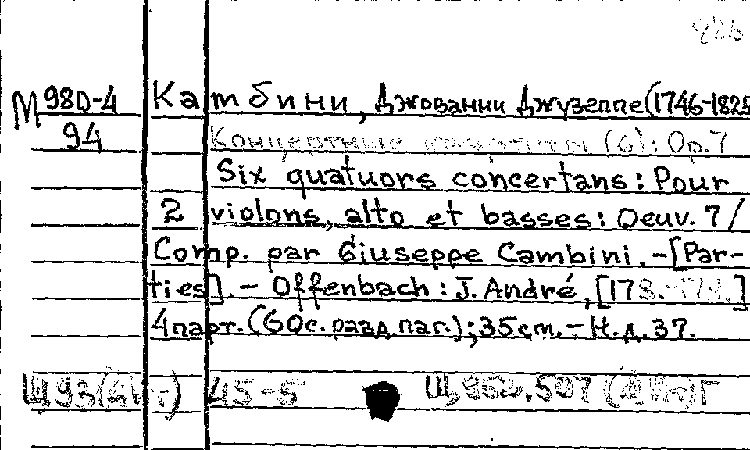 М 980-4 Камбини, Джованни Джузеппе (1746-1825
94 Концертные квартеты (6): Op. 7
Six quatuors concertans: Pour
2 violons, alto et basses: Oeuv. 7 /
Comp. par Giuseppe Cambini. - [Par-
ties]. - Offenbach: J. André, [178.-179.]
4 парт. (60с. разд. паг.); 35cm. - Н.д. 37.
45-5